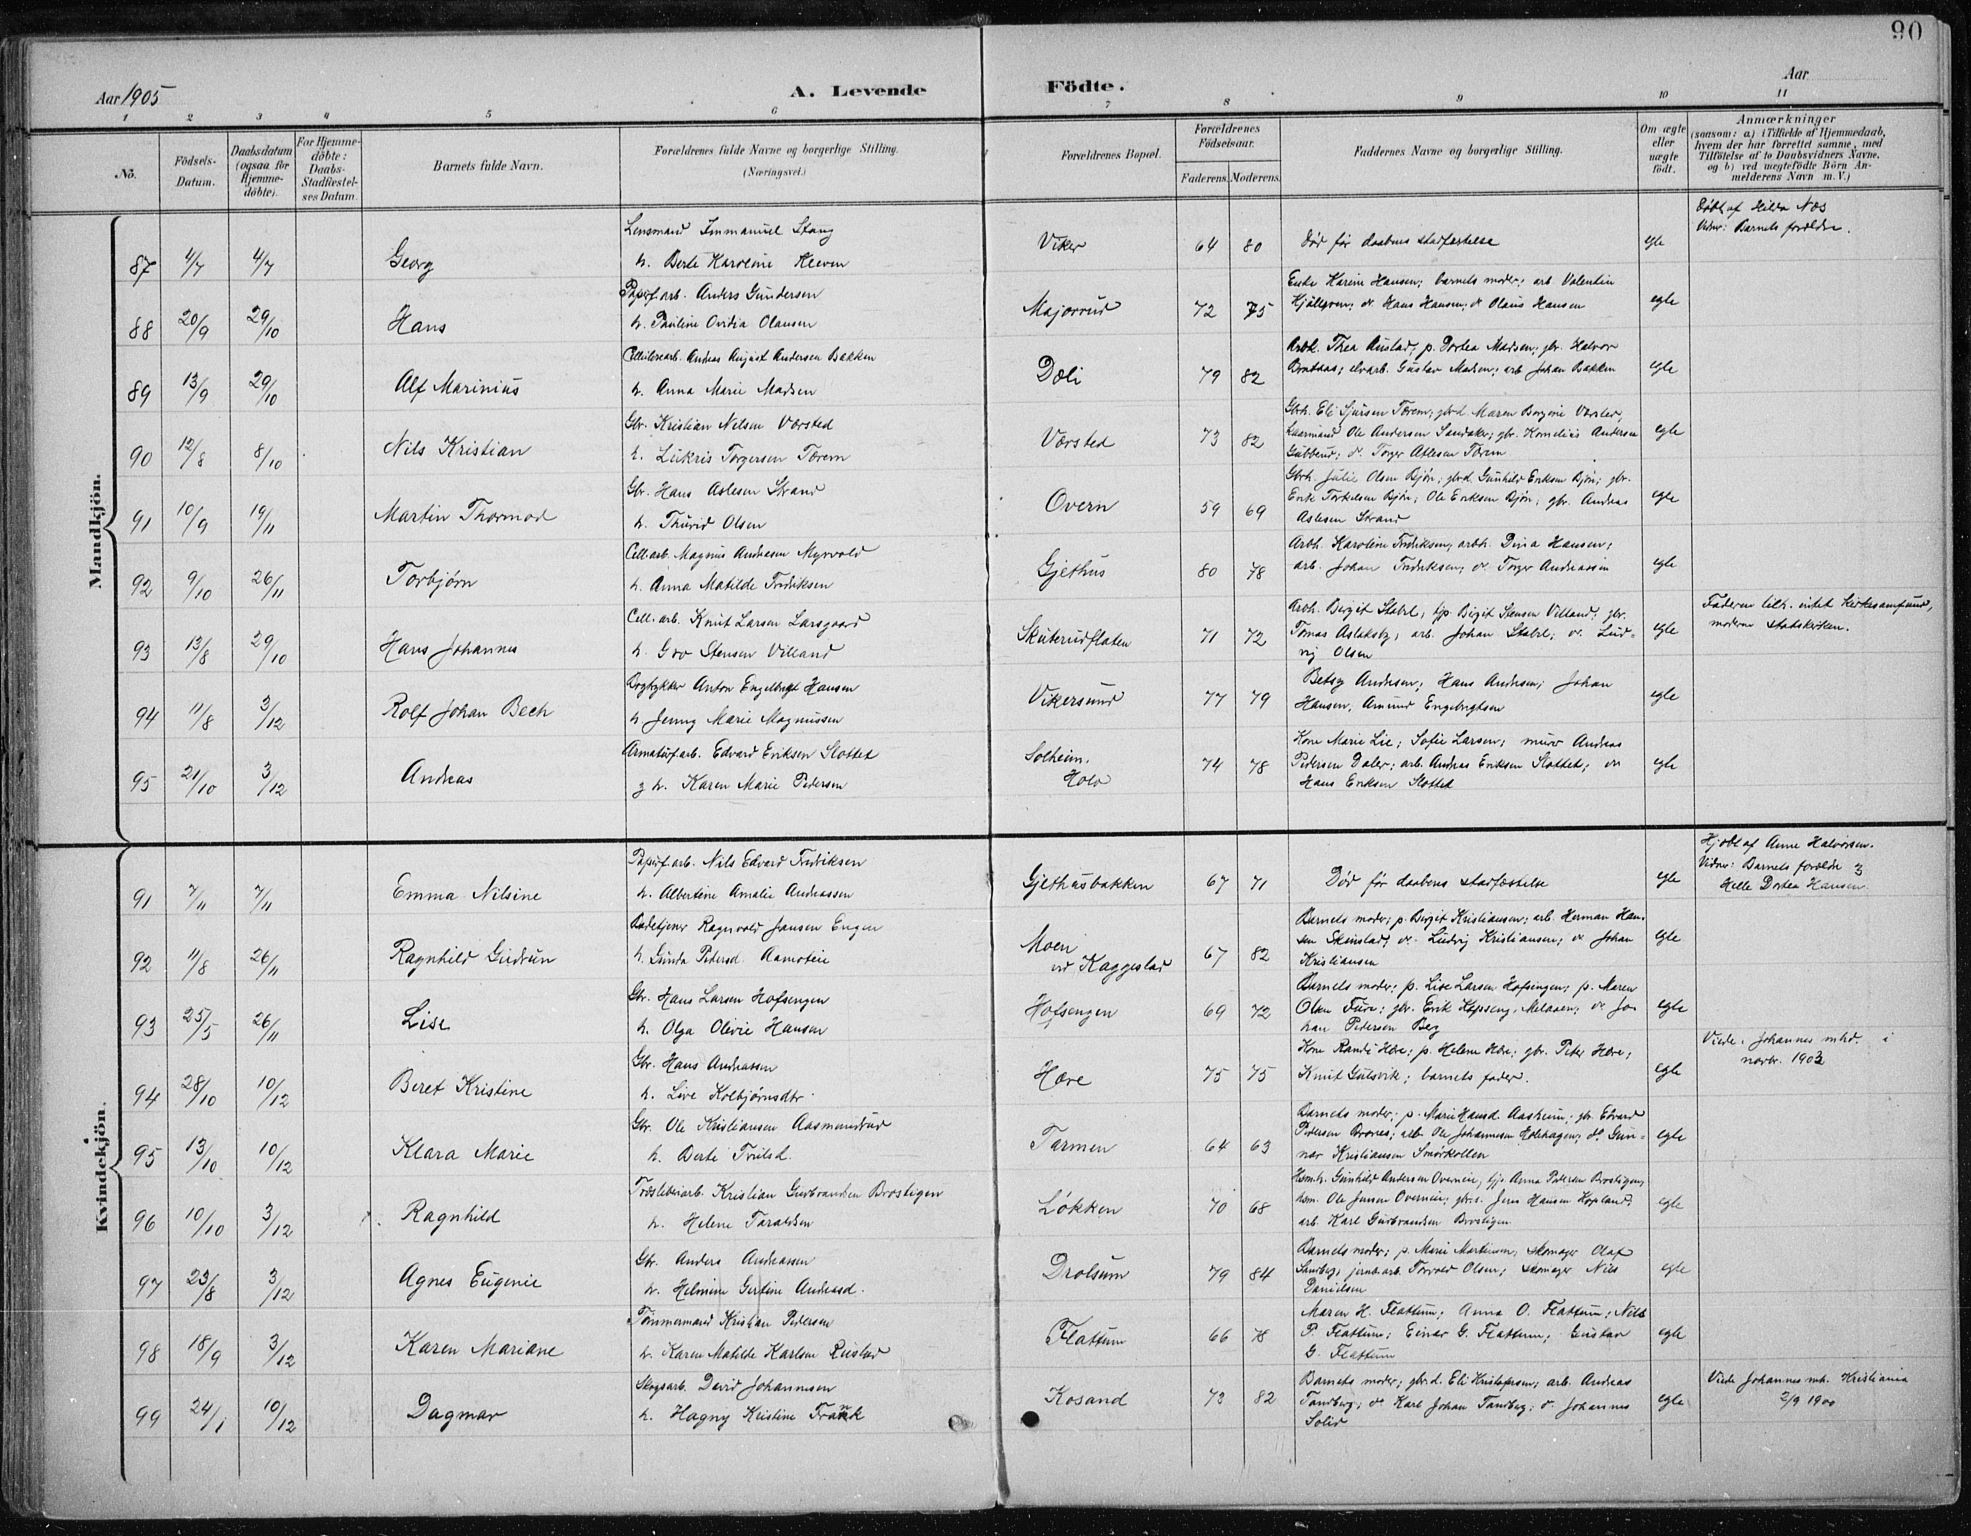 90
Aar 1905
A. Levende Födte.
Aar
1 2 3 4 5 6 7 8 9 10 11
No.
Födsels-Datum.
Daabsdatum (ogsaa for Hjemme-döbte).
For Hjemme-döbte: Daabs-Stadfæstel-ses Datum.
Barnets fulde Navn.
Forældrenes fulde Navne og borgerlige Stilling.
(Næringsvei.)
Forældrenes Bopæl.
Forældrenes Födselsaar.
Faderens. Moderens.
Faddernes Navne og borgerlige Stilling.
Om ægte eller uægte födt.
Anmærkninger
(saasom: a.) i Tilfælde af Hjemmedaab,
hvem der har forrettet samme, med
Tilföielse af to Daabsvidners Navne,
og b) ved uægtefödte Börn An-
melderens Navn m. V.)
Mandkjön.
87 4/7 4/7 Georg
Lensmand Immanuel Stang
h. Berte Karoline Kleven
Viker 64 80 Død før daabens stadfæstelse egte
Døbt af Hilda Næs
Vidner: Barnets forældre.
88 20/9 29/10 Hans
Papirf.arb. Anders Gundersen
h. Pauline Ovidia Olausen
Majorrud 72 75
Enke Karine Hansen; barnets moder; arb. Valentin
; do Hans Hansen; do Olaus Hansen
egte
89 13/9 29/10 Alf Marinius
Cellulosearb. Andreas August Andersen Bakken
h. Anna Marie Madsen
Dæli 79 82
Arbk. Thea Austad; p. Dortea Madsen; gbr. Halvor
Braataas; elvarb. Gustav Madsen; arb Johan Bakken
egte
90 12/8 8/10 Nils Kristian
Gbr. Kristian Nilsen Værsted
h. Lukris Torgersen Tærem
Værsted 73 82
Gbrh. Eli Sjursen Tærem; gbrd. Maren
Ole Andersen Sandaker; gbr. Kornelius Andersen
Gubberud; do. Torger Atlesen Tærem
egte
91 10/9 19/11 Martin Thormod
Gbr. Hans Aslesen Strand
h. Thurid Olsen
Overn 59 69
Gbrh. Julie Olsen Bjøn; gbrd. Gunhild Eriksen Bjøn; gbr.
Erik Torkelsen Bjøn; Ole Eriksen Bjøn; gbr. Andreas
Aslesen Strand
egte
92 9/10 26/11 Torbjørn
Cell.arb. Magnus Andresen Myrvold
h. Anna Matilde Fredriksen
Gjethus 80 78
Arbh. Karoline Fredriksen; arbh. Dina Hansen;
arb. Johan Fredriksen; do. Torger Andreassen
egte
93 13/8 29/10 Hans Johannes
Cell.arb. Knut Larsen Larsgaard
h. Gro Stensen Villand
Skuterudflaten 71 72
Arbh. Bergit Stabel; tjp. Birgit Stensen Villand; gbr.
Tomas Aslaksby; arb. Johan Stabel; do. Lud-
vig Olsen
egte
Faderen tilh. intet kirkesamfund,
moderen statskirken.
94 11/8 3/12 Rolf Johan Bech
Bogtrykker Anton Engelbregt Hansen
h. Jenny Marie Magnussen
Vikersund 77 79
Betsy Andresen; Hans Andresen; Johan
Hansen, Amund Engebrigtsen
egte
95 21/10 3/12 Andreas
Armaturarb. Edvard Eriksen Slottet
h. Karen Marie Pedersen
Solheim,
Holo
74 78
Kone Marie Lie; Sofie Larsen; murer Andreas
Pedersen Daler; arb. Andreas Eriksen Slottet; do
Hans Eriksen Slottet
egte
Kvindekjön.
91 7/11 7/11 Emma Nilsine
Papirf.arb. Nils Edvard Fredriksen
h. Albertine Amalie Andreassen
Gjethusbakken 67 71 Død før daabens stadfæstelse egte
Hj.døbt af Anne Halvorsen.
Vidner: Barnets forældre &
Helle Dortea Hansen.
92 11/8 26/11 Ragnhild Gudrun
Badetjener Ragnvald Jansen Engen
h. Gunda Petersd. Aamoteie
Moen
ved Kaggestad
67 82
Barnets moder; p. Bergit Kristiansen; arb. Herman Han-
sen Skinstad; do. Ludvig Kristiansen; do Johan
Kristiansen
egte
93 25/5 26/11 Lise
Gbr. Hans Larsen Hofsengen
h. Olga Olevie Hansen
Hofsengen 69 72
Barnets moder; p. Lise Larsen Hofsengen; p. Maren
Olsen Fure; gbr. Erik Melaaen; do Jo-
han Pedersen Berg
egte
94 28/10 10/12 Beret Kristine
Gbr. Hans Andreassen
h. Live Kolbjørnsdtr.
Hære 75 75
Kone Randi Hære; p. Helene Hære; gbr. Peter Hære;
Knut Gulsvik; barnets fader.
egte
Viede i Johannes mhd. i
novbr. 1903
95 13/10 10/12 Klara Marie
Gbr. Ole Kristiansen Aasmundrud
h. Berte Trulsd.
Tarmen 64 63
Barnets moder; p. Marie Hansd. Aasheim; gbr. Edvard
Pedersen Brones; arb. Ole Johannesen Holehagen; do. Gun-
nar Kristiansen Smørkollen
egte
96 10/10 3/12 Ragnhild
Træsliberiarb. Kristian Gudbrandsen Brostigen
h. Helene Taraldsen
Løkken 70 68
Hsm.h. Gunhild Andersen Overneie, tjp. Anna Pedersen Brostigen;
hsm. Ole Jensen Overneie; gbrs. Jens Hansen Kopland;
arb. Karl Gudbrandsen Brostigen
egte
97 23/8 3/12 Agnes Eugenie
Gbr. Anders Andreassen
h. Helmine Gertine Andreasd.
Drolsum 79 84
Barnets moder; p. Marie Martinsen; skomager Olaf
Sandberg; jernb.arb. Torvald Olsen; skomager Nils
Danielsen
egte
98 18/9 3/12 Karen Mariane
Tømmermand Kristian Pedersen
h. Karen Matilde Karlsen Rustad
Flattum 66 78
Maren H. Flattum; Anna O. Flattum; Nils
P. Flattum; Einar G. Flattum; Gustav
G. Flattum
egte
99 24/1 10/12 Dagmar
Skogsarb. David Johannesen
h. Hagny Kristine Frakk
Kosand 73 82
Barnets moder; gbr.d. Eli Kristofersen; arb. Andreas
Tandberg; do Karl Johan Tandberg; do. Johannes
Solid
egte
Viede Johannes mh. Kristiania
2/9 1900